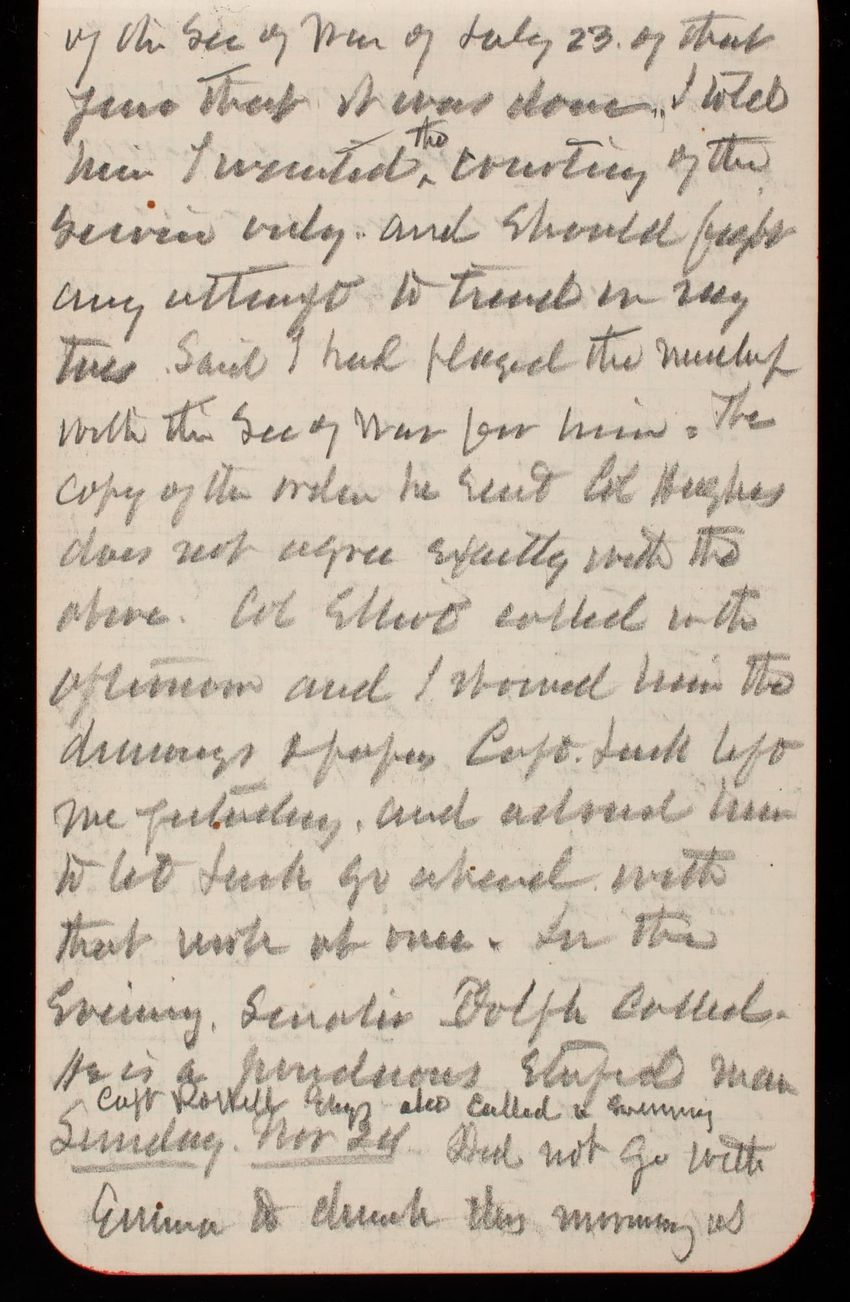 of the Sec of War of July 23. of that
year that it was done". I told
him I wanted the courtesy of the
service only. and should fight
any attempt to tread on my
toes. Said I had played the
with the Sec of War for him. The
copy of the order he sent Col Hughes
does not agree exactly with the
above. Col Elliot called in the
afternoon and I showed him the
drawings & papers Capt. Lusk left
me yesterday. and advised him
to let Lusk go ahead with
that work at once. In the
Evening. Senator Dolph called.
He is a ponderous stupid man
Capt Rossell Engs also called in evening
Sunday. Nov 24 Did not go with
Emma to church this morning as